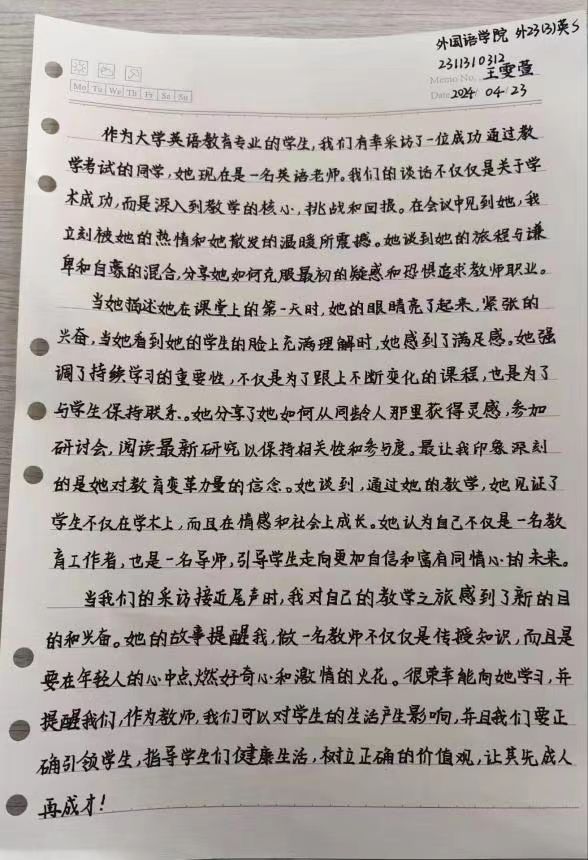 外国语学院 外23(3)英S
2311310312
Memo No. 王雯萱
Mo Tu We Th Fr Sa Su
Date 2024 04 23
作为大学英语教育专业的学生,我们有幸采访了一位成功通过教
学考试的同学,她现在是一名英语老师。我们的谈话不仅仅是关于学
术成功,而是深入到教学的核心,挑战和回报。在会议中见到她,我
立刻被她的热情和她散发的温暖所震撼。她谈到她的旅程与谦
卑和自豪的混合,分享她如何克服最初的疑惑和恐惧追求教师职业。
当她描述她在课堂上的第一天时,她的眼睛亮了起来,紧张的
兴奋,当她看到她的学生的脸上充满理解时,她感到了满足感。她强
调了持续学习的重要性,不仅是为了跟上不断变化的课程,也是为了
与学生保持联系。她分享了她如何从同龄人那里获得灵感,参加
研讨会,阅读最新研究以保持相关性和参与度。最让我印象深刻
的是她对教育变革力量的信念。她谈到,通过她的教学,她见证了
学生不仅在学术上,而且在情感和社会上成长。她认为自己不仅是一名教
育工作者,也是一名导师,引导学生走向更加自信和富有同情心的未来。
当我们的采访接近尾声时,我对自己的教学之旅感到了新的目
的和兴奋。她的故事提醒我,做一名教师不仅仅是传授知识,而且是
要在年轻人的心中点燃好奇心和激情的火花。很荣幸能向她学习,并
提醒我们,作为教师,我们可以对学生的生活产生影响,并且我们要正
确引领学生,指导学生们健康生活,树立正确的价值观,让其先成人
再成才!